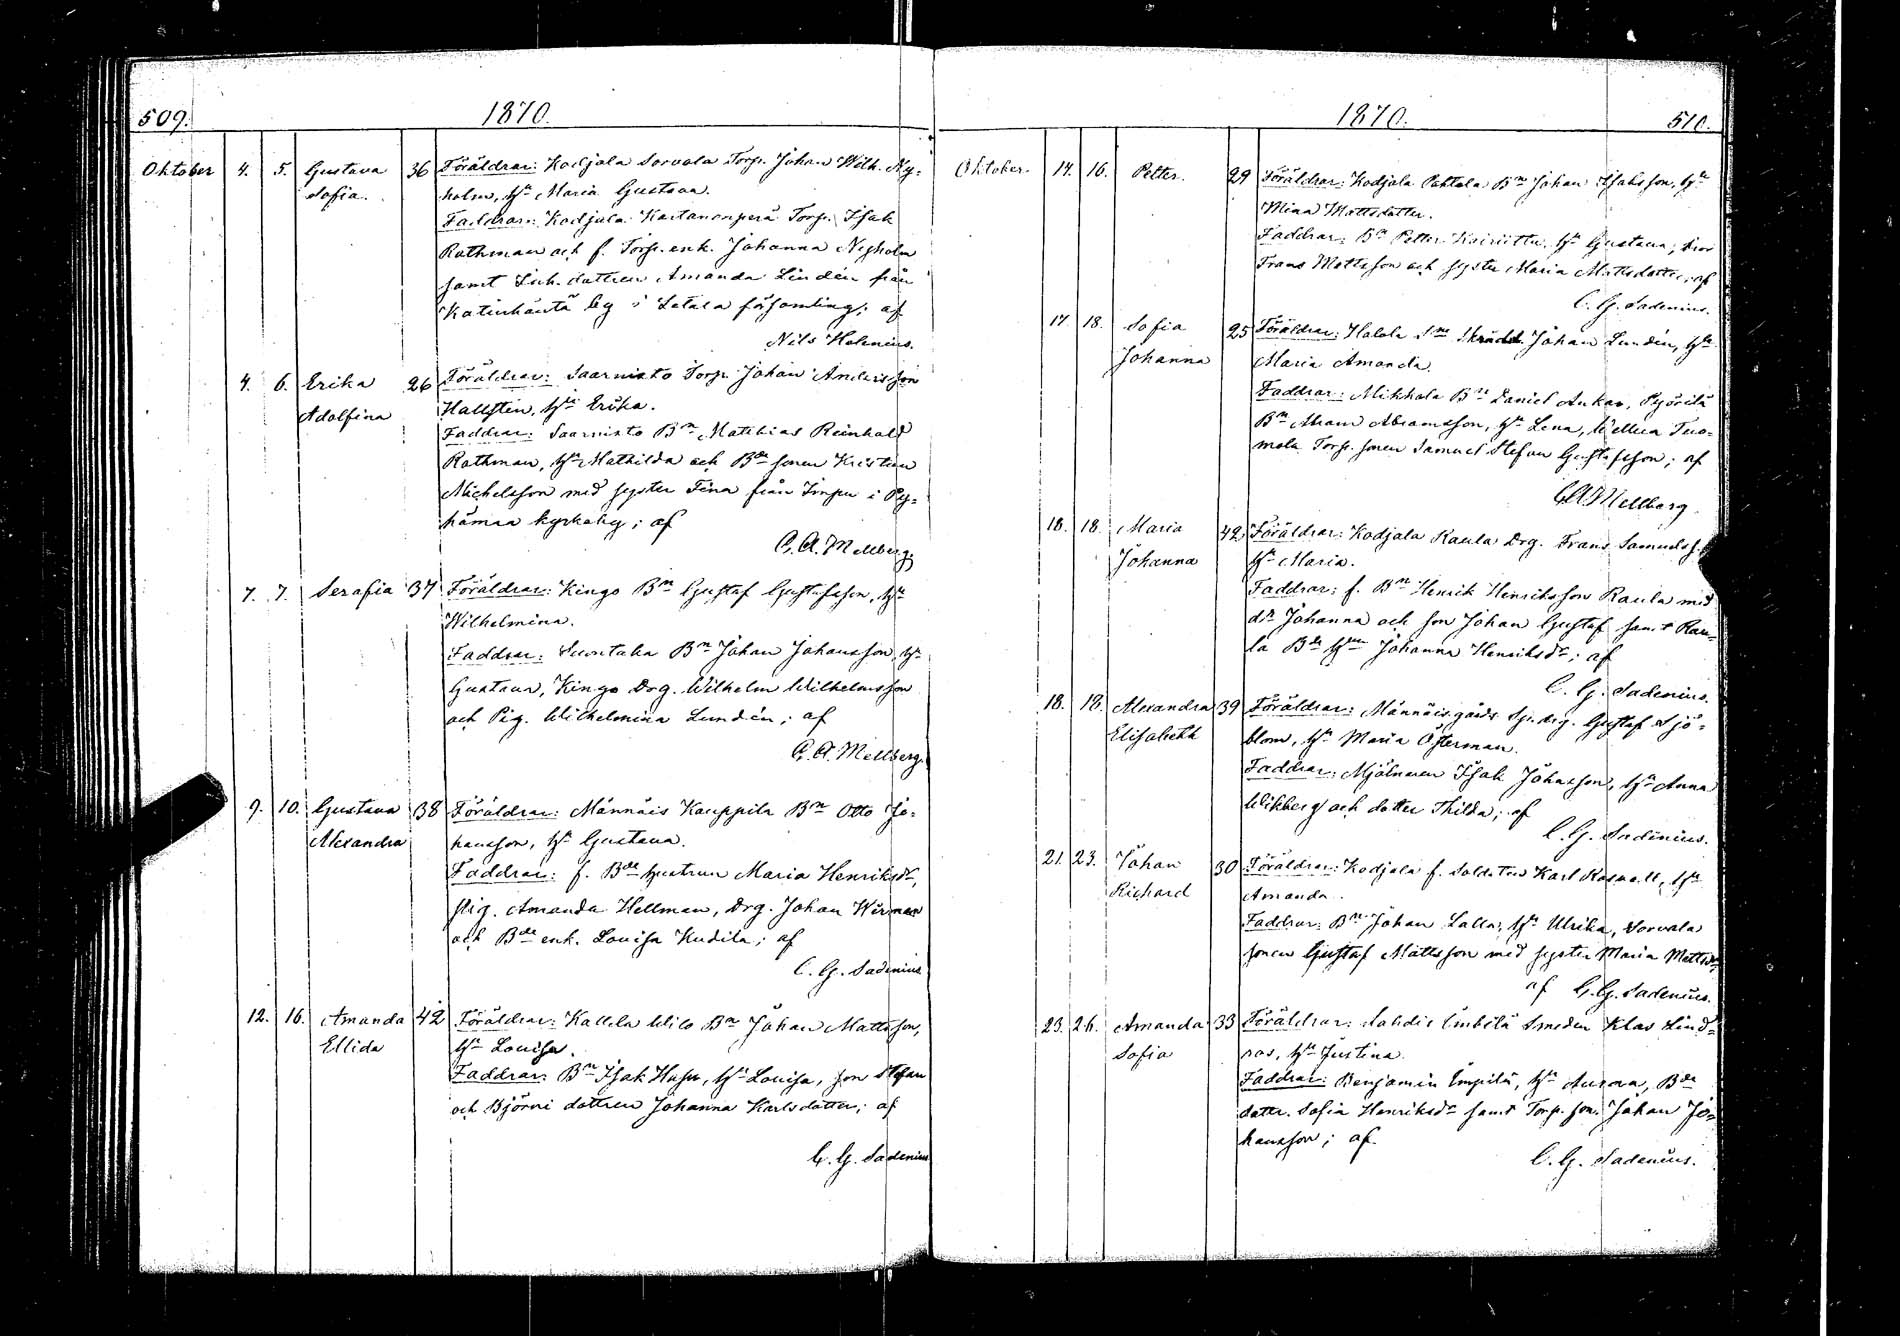 509. 1870.
Oktober 4. 5. Gustava 36 Föräldrar: Kodjala Sorvala Torp. Johan Wilh. Ny-
Sofia. holm, Hu Maria Gustava.
Faddrar: Kodjala Kartanonperä Torp. Isak
Rothman och f. Torp. enk. Johanna Nyholm
samt dottren Amanda Lindén från
Katinhäntä by i Letala församling; af
Nils Helenius.
4. 6. Erika 26 Föräldrar: Saarnisto Torp. Johan Andersson
Adolfina Hallstén, Hu Erika.
Faddrar: Saarnisto Bn Matthias Reinhold
Rothman, Hu Mathilda och Bde sonen Kristian
Michelsson med syster Fina från i Py-
hämaa kyrkoby; af
C. A. Mellberg.
7. 7. Serafia 37 Föräldrar: Kingo Bn Gustaf Gustafsson, Hu
Wilhelmina.
Faddrar: Suontaka Bn Johan Johansson, Hu
Gustava, Kingo Drg. Wilhelm Wilhelmsson
och Pig. Wilhelmina Lundén; af
C. A. Mellberg.
9. 10. Gustava 38 Föräldrar: Männäis Kauppila Bn Otto Jo-
Alexandra hansson, Hu Gustava.
Faddrar: f. Bde hustrun Maria Henriksdr,
Pig. Amanda Hellman, Drg. Johan Wirman
och Bde enk. Lovisa Kudila; af
C. G. Sadenius
12. 16. Amanda 42 Föräldrar: Kallela Wilo Bn Johan Mattsson,
Ellida Hu Lovisa.
Faddrar: Bn Isak Hasu, Hu Lovisa, son Stefan
och Björni dottren Johanna Karlsdotter; af
C. G. Sadenius
1870. 510.
Oktober. 14. 16. Petter. 29 Föräldrar: Kodjala Pahtala Bn Johan Isaksson, Hu
Mina Mattsdotter.
Faddrar: Bn Petter Hu Gustava, bror
Frans Mattsson och syster Maria Mattsdotter; af
C. G. Sadenius.
17. 18. Sofia 25 Föräldrar: Halola Skrädd. Johan Lundén, Hu
Johanna Maria Amanda.
Faddrar: Mikkola Bn Daniel Ankar, Pyörilä
Bn Abram Abramsson, Hu Lena, Wellua Tuo-
mola Torp. sonen Samuel Stefan Gustafsson; af
C. A. Mellberg.
18. 18. Maria 42 Föräldrar: Kodjala Raula Drg. Frans Samuelss.
Johanna Hu Maria.
Faddrar: f. Bn Henrik Henriksson Raula med
dr Johanna och son Johan Gustaf samt Rau-
la Bde Hun Johanna Henriksdr; af
C. G. Sadenius.
18. 18. Alexandra 39 Föräldrar: Männäis gårds Sp. drg. Gustaf Sjö-
Elisabeth blom, Hu Maria Österman.
Faddrar: Mjölnaren Isak Johansson, Hu Anna
Wikberg och dotter Thilda; af
C. G. Sadenius.
21. 23. Johan 30 Föräldrar: Kodjala f. Soldaten Karl Hu
Richard Amanda.
Faddrar: Bn Johan Lalla, Hu Ulrika, Sorvala
sonen Gustaf Mattsson med syster Maria Mattsdr
af C. G. Sadenius.
23. 26. Amanda 33 Föräldrar: Lahdis Smeden Klas Lind-
Sofia ros, Hu Justina.
Faddrar: Benjamin Hu Aurora, Bde
dotter. Sofia Henriksdr samt Torp. son. Johan Jo-
hansson; af
C. G. Sadenius.